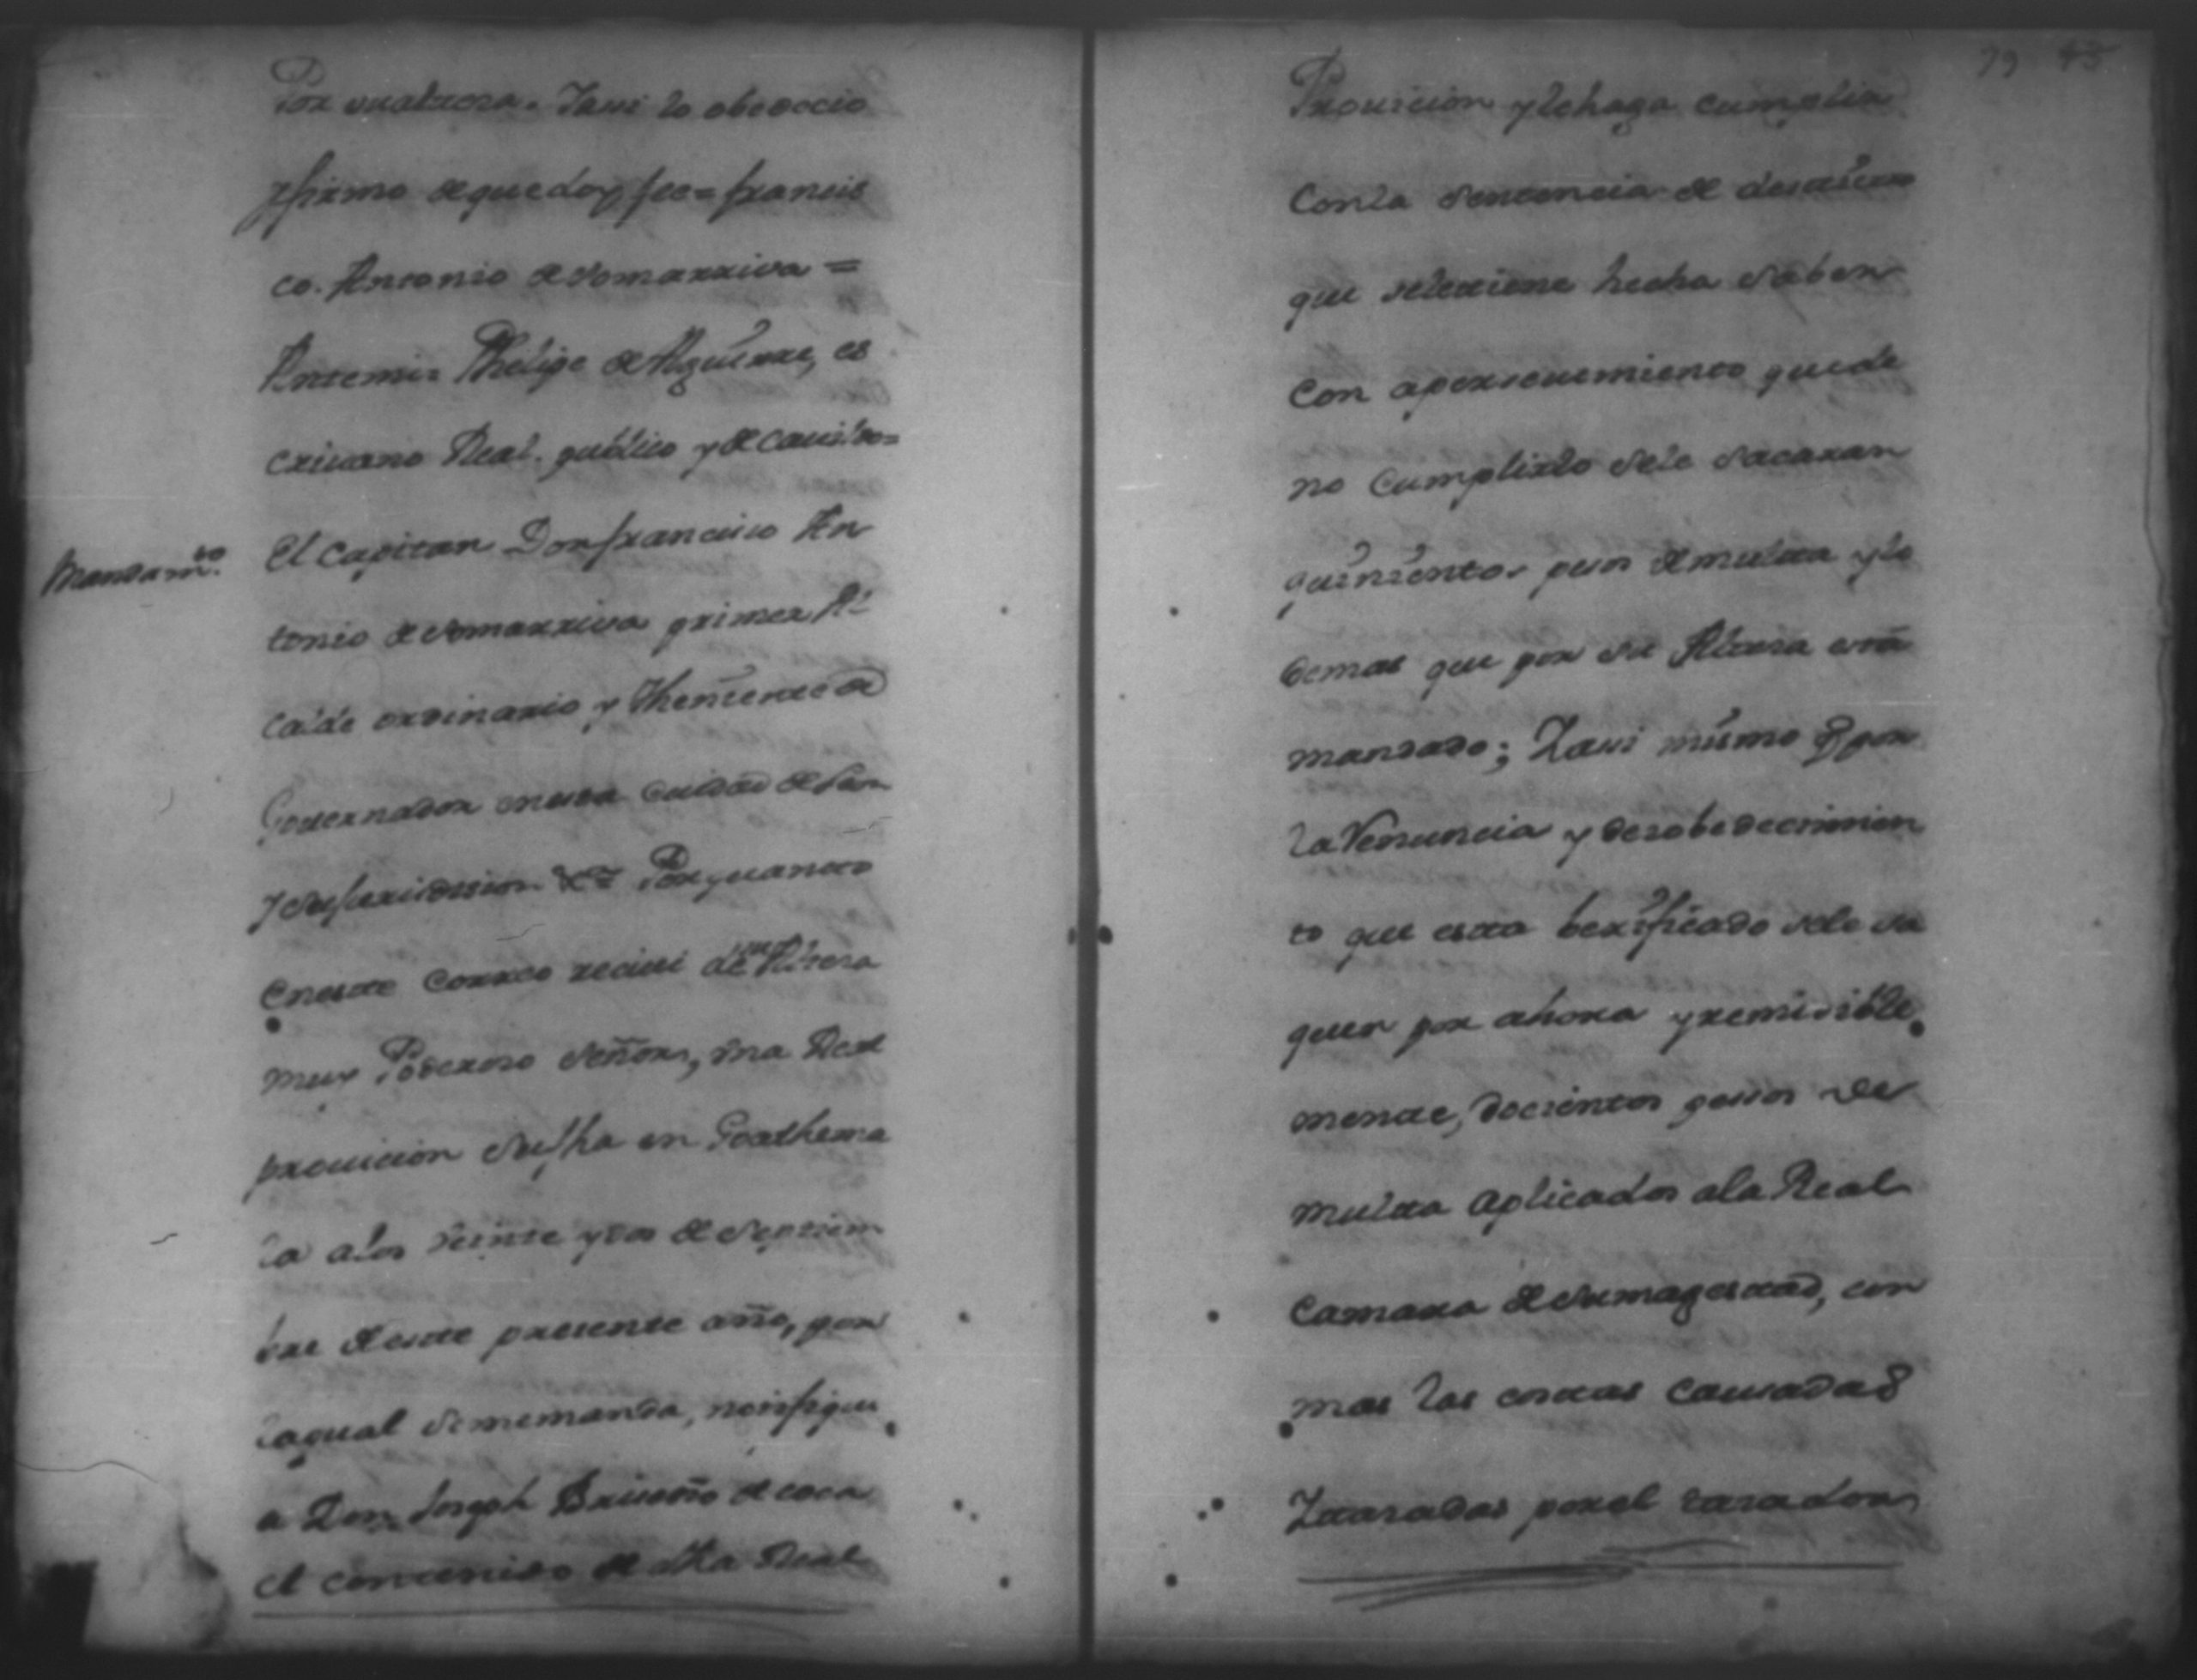 Por su alteza. Yaui lo obedecio
yfirmo deque doy fee = francis
co. Antonio desomarriva =
Antemi = Phelipe de Aguirre, es
criuano Real. publico y de Cauildo =
Mandamto.
El Capitan Don francisco An
tonio desomarriua primer Al
calde ordinario y Theniente de
Gouernador enesta Ciudad de san
ysuJurisdission &a = Por quanto
eneste Correo reciui de su Alteza
muy Poderoso señor, vna Real
prouicion sufha en Goathema
la alos veinte ydos de septiem
bre deeste presente año, por
laqual seme manda, notifique
a Don Joseph Briseño de coca
el contenido de dha Real
79 45
Prouicion ylehaga cumplir
Conla sentencia de destierro
que seletiene hecha saber
Con aperseuimiento quede
no Cumplirlo sele sacaran
quinientos pesos de multa ylo
demas que por su Alteza está
mandado; Yaui mismo q por
la Renuencia y desobedecimien
to que esta berificado sele sa
quen por ahora yremisible
mente, docientos pesos de
multa aplicados ala Real
Camara desumagestad, con
mas las costas Causadas
Ytasadas porel tasador